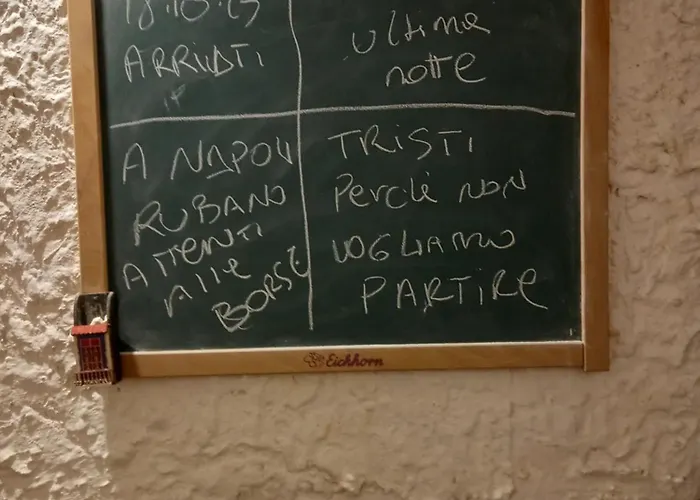 18.10.25
ARRIVATI
Ultima
notte
A NAPOLI
RUBANO
ATTENTI
Alle
BORSE
TRISTI
Perchè NON
VOGLIAMO
PARTIRE
Eichhorn